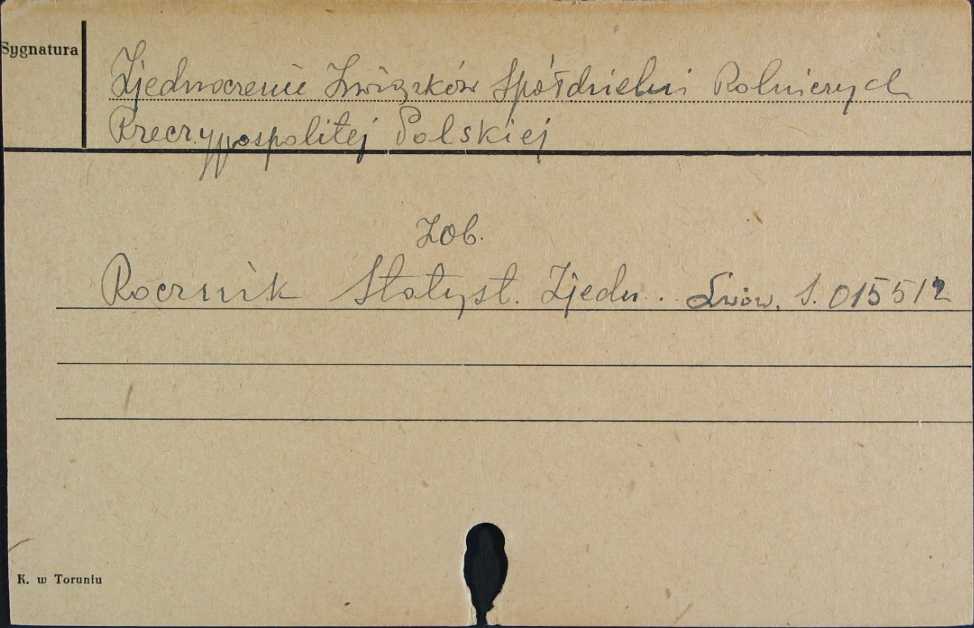 Sygnatura
Zjednoczenie Związków Spółdzielni Rolniczych
Rzeczypospolitej Polskiej
Zob.
Rocznik Statyst. Zjedn. Lwów. S. 015512
K. w Toruniu